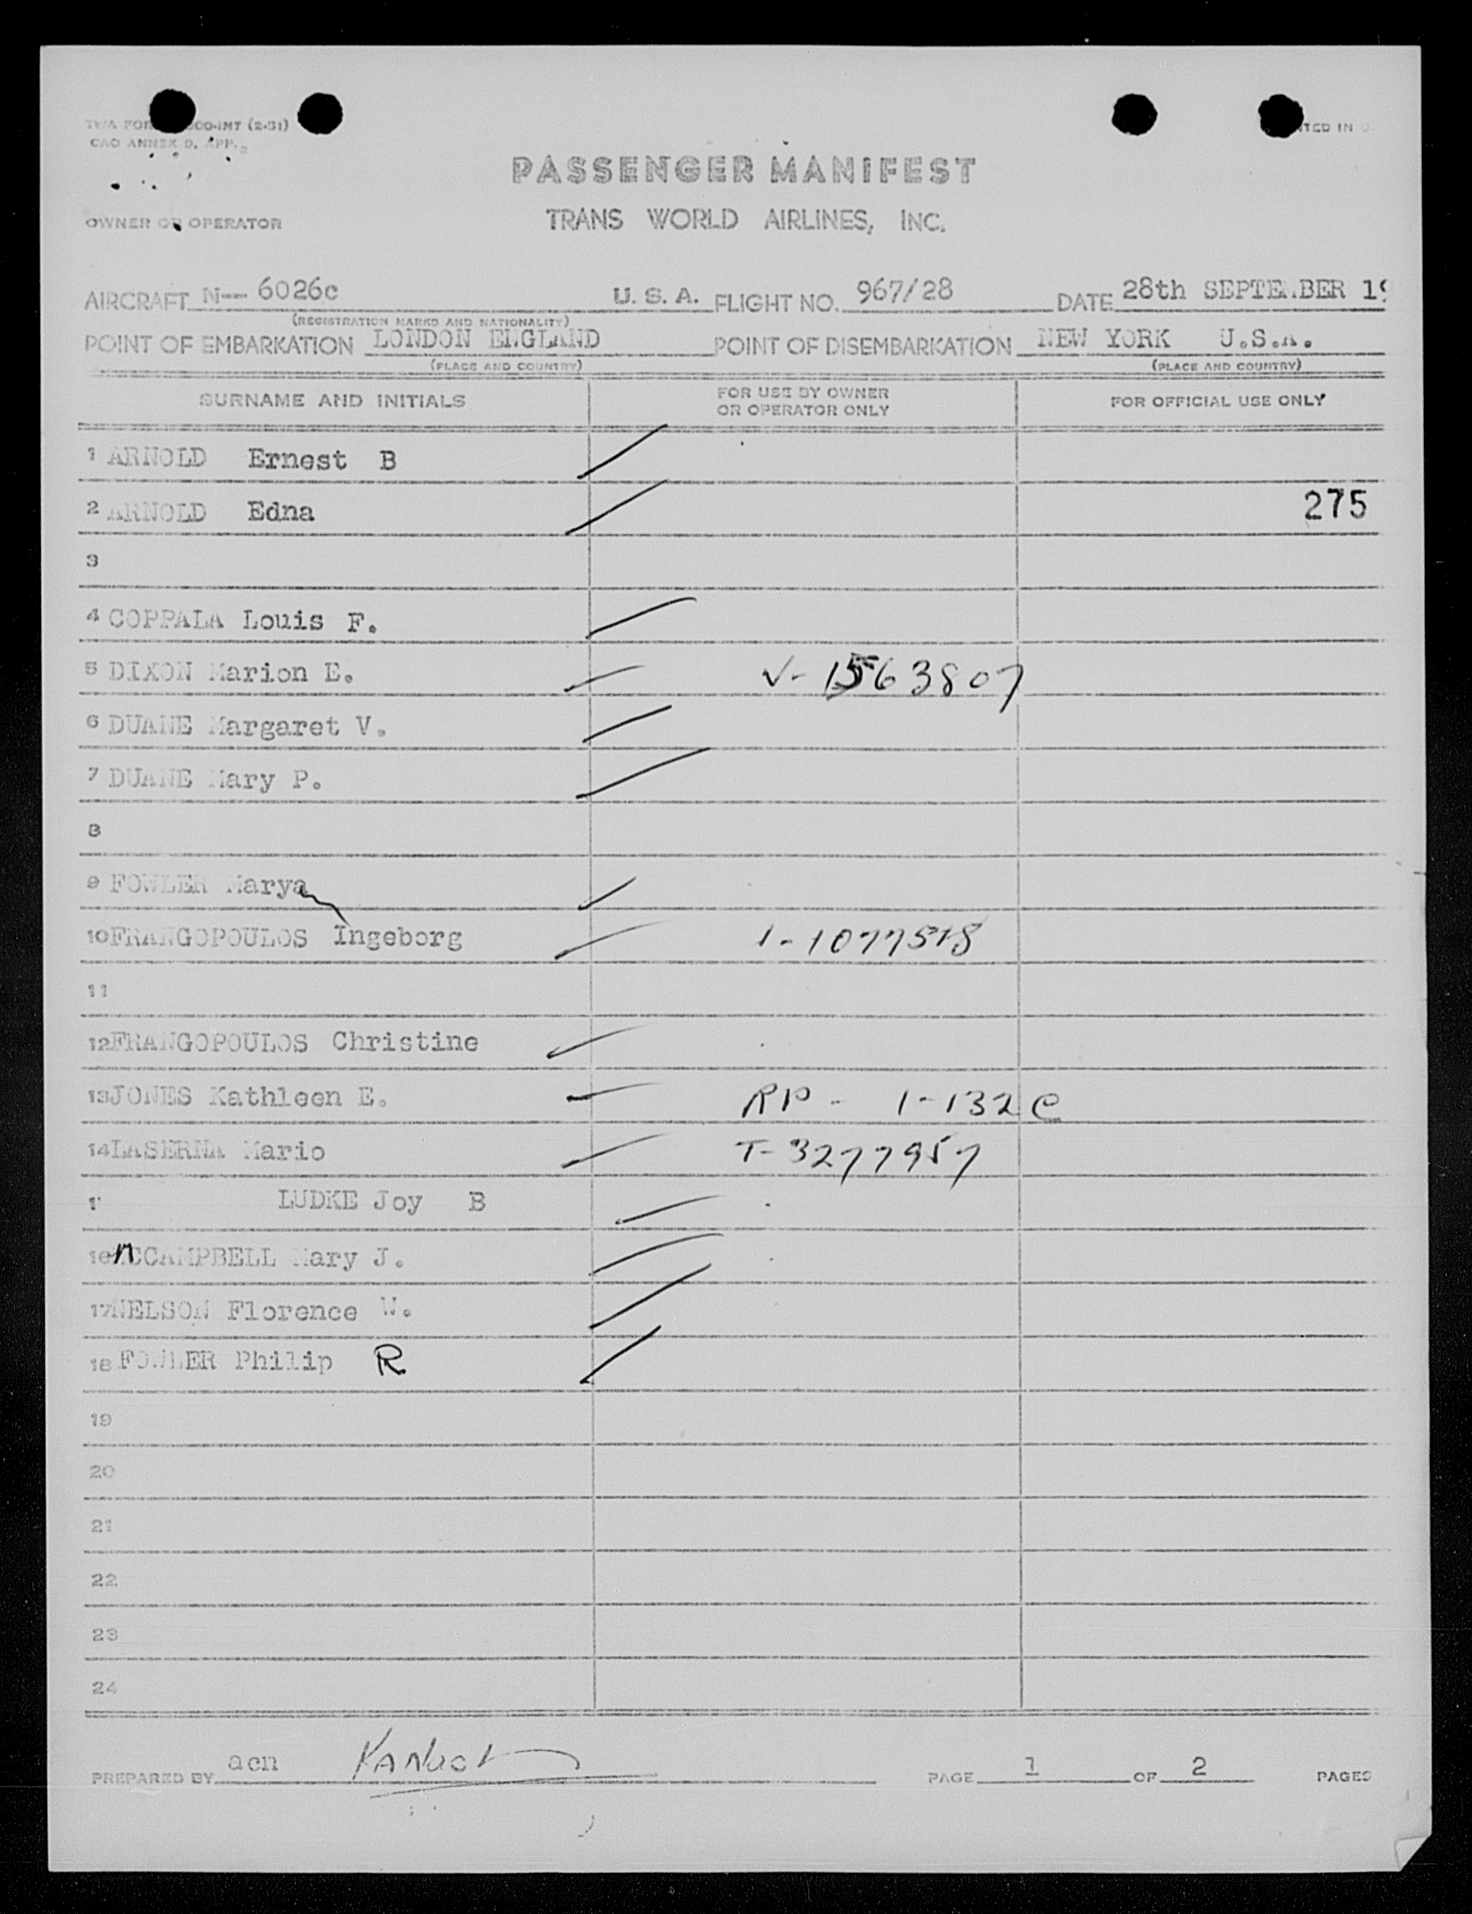 (2-51)
CAO ANNEX D, APP. 2
PASSENGER MANIFEST
OWNER OR OPERATOR TRANS WORLD AIRLINES, INC.
AIRCRAFT N-- 6026c U. S. A. FLIGHT NO. 967/28 DATE 28th SEPTEMBER 19
(REGISTRATION MARKS AND NATIONALITY)
POINT OF EMBARKATION LONDON ENGLAND POINT OF DISEMBARKATION NEW YORK U.S.A.
(PLACE AND COUNTRY) (PLACE AND COUNTRY)
SURNAME AND INITIALS FOR USE BY OWNER OR OPERATOR ONLY FOR OFFICIAL USE ONLY
1 ARNOLD Ernest B
2 ARNOLD Edna 275
3
4 COPPALA Louis F.
5 DIXON Marion E. V-1563807
6 DUANE Margaret V.
7 DUANE Mary P.
8
9 FOWLER Marya
10 FRANGOPOULOS Ingeborg
11
12 FRANGOPOULOS Christine
13 JONES Kathleen E. RP - 1-132 C
14 LASERNA Mario T-3277957
LUDKE Joy B
16 MCCAMPBELL Mary J.
17 NELSON Florence W.
18 FOWLER Philip R
19
20
21
22
23
24
PREPARED BY acn PAGE 1 OF 2 PAGES